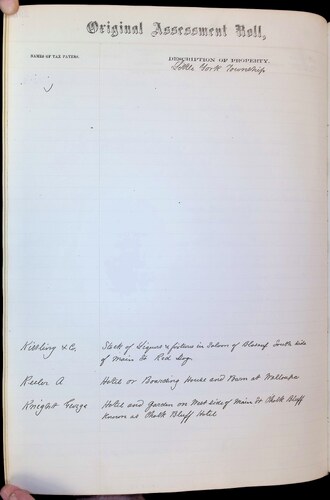 Original Assessment Roll,
NAMES OF TAX PAYERS.
DESCRIPTION OF PROPERTY.
Little York Township
Kissling & Co. Stock of Liquors & fixtures in Saloon of South side
of Main St Red Dog.
Keeler A Hotel or Boarding House and Barn at Walloupa
Knight George Hotel and Garden on West side of Main St Chalk Bluff
Known as Chalk Bluff Hotel